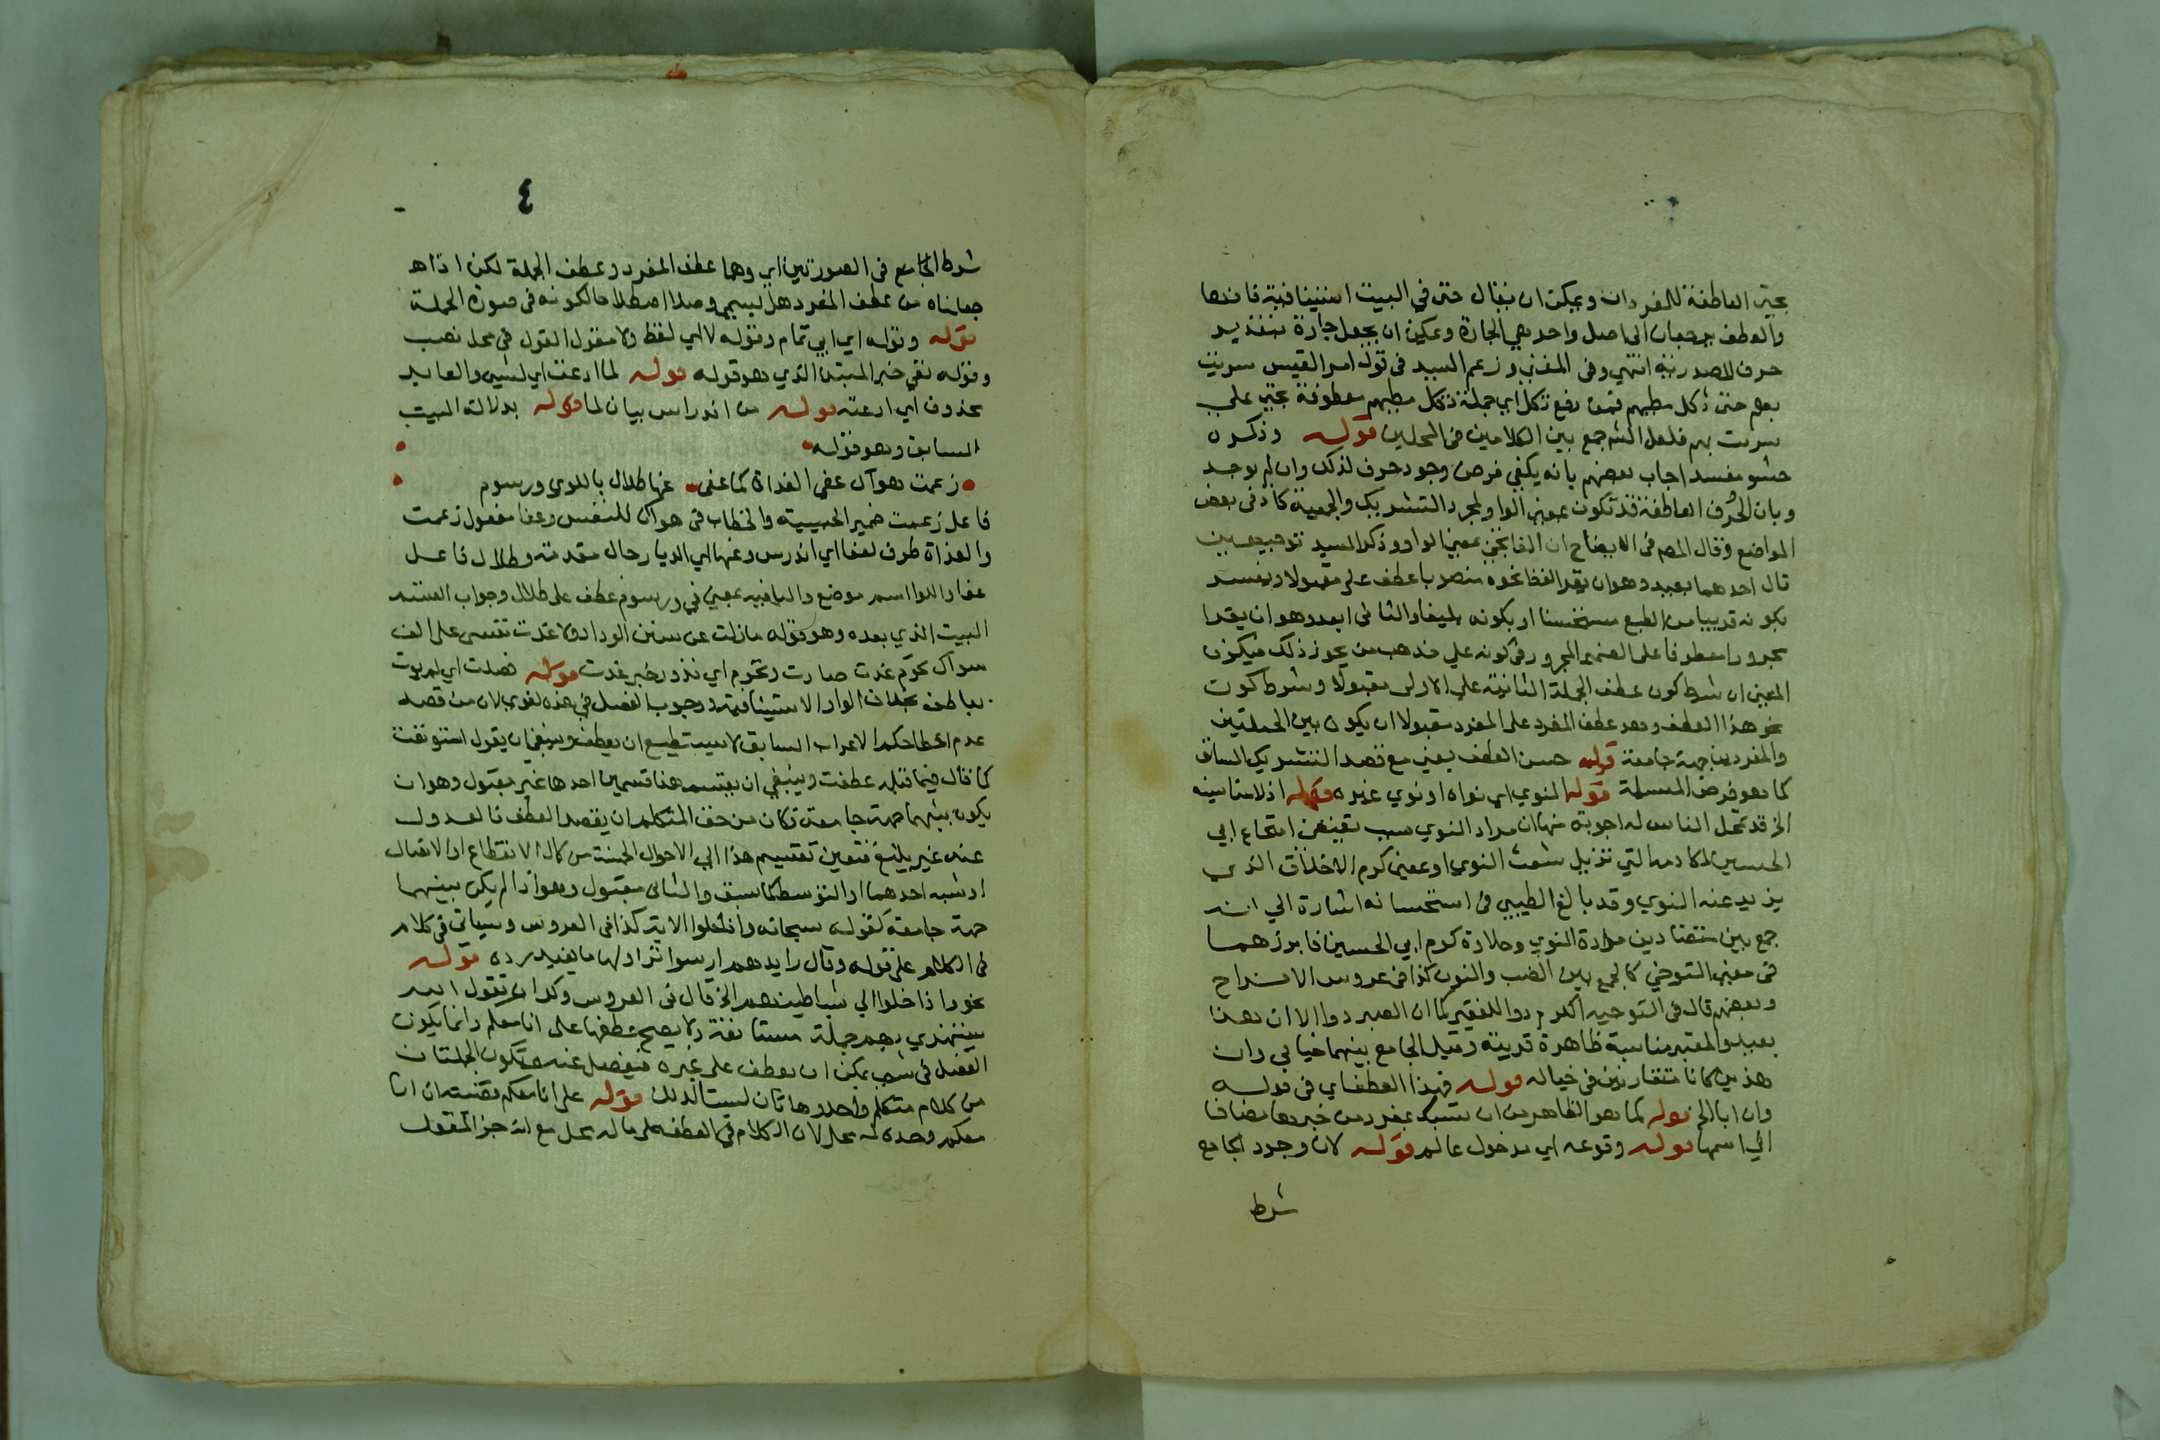 بجيز العاطفة للمفردات ويمكن ان يقال حتى في البيت استينافية فانها
والعطف يرجعان الى اصل واحد وهي الجارة ويمكن ان يجعل جارة بتقدير
حرف المصدرية انتهى وفى المغني وزعم السيد فى قول امرا القيس سريت
بهم حتى تكل مطيهم فيمن رفع تكل اي جملة تكل مطيهم معطوفة بحتى على
سريت بهم فلعل الشم جمع بين الكلامين فى المحلين قوله وذكره
حشو مفسد اجاب بعضهم بانه يكفي فرض وجود حرف لذلك وان لم يوجد
وبان الحرف العاطفة قد تكون بمعنى الواو لمجرد التشريك والجمعية كما فى بعض
المواضع وقال المصم فى الايضاح ان الفا بحتى بمعنى الواو وذكر السيد توجيهين
قال احدهما بعيد وهو ان يقدر لفظا نحوه منصوبا عطف على مقبولا ويفسد
بكونه قريبا من الطبع مستحسنا او بكونه بليغا والثانى ابعد وهو ان يقدر
مجرورا معطوفا على الضمير المجرور فى كونه على مذهب من يجوز ذلك فيكون
المعنى ان شرط كون عطف الجملة الثانية على الاولى مقبولا وشرط كون
نحو هذا العطف وهو عطف المفرد على المفرد مقبولا ان يكون بين الجملتين
والمفردين جهة جامعة قوله حسن العطف يعني مع قصد التشريك السابق
كما هو فرض المسئلة قوله النوى اي نواه او نوي غيره قوله اذ لا مناسبة
الخ قد تمحل الناس له اجوبة منها ان مراد النوى سبب يقتضي اجتماع ابي
الحسين المكارم التي تزيل شعث النوى او بمعنى كرم الاخلاق الذي
يزيد عنه النوى وقد بالغ الطيبي فى استحسانه اشارة الى انه
جمع بين متضادين مرارة النوى وحلاوة كرم ابي الحسين فابرزهما
فى معنى التوخي كالجمع بين الضب والنون كذا فى عروس الافراح
وبعضهم قال فى التوجيه الكرم دوا للفقير كما ان الصبر دوا الا ان هذا
بعيد والمعتبر مناسبة ظاهرة قريبة وقيل الجامع بينهما خيالي وان
هذين كانا متقارنين فى خياله قوله فهذا العطف اي فى قوله
وان ابا الخ قوله كما هو الظاهر من ان تسبك بمفرد من خبرها مضافا
الى اسمها قوله وقوعه اي مدخول عالم قوله لان وجود الجامع
شرط
٤
شرط الجامع فى الصورتين اي وهما عطف المفرد وعطف الجملة لكن اذا هـ
جعلناه من عطف المفرد هل يسمى وصلا اصطلاحا لكونه فى صورة الجملة
قوله وقوله اي ابي تمام وقوله لا اي لفظ ولا مقول القول فى محل نصب
وقوله نفي خبر المبتدا الذي هو قوله قوله لما ادعت اي لشي والعايد
محذوف اي ادعته قوله من اندراس بيان لما قوله بدلالة البيت
السابق وهو قوله
زعمت هواك عفى الغداة كما عفى عنها طلال باللوى ورسوم
فاعل زعمت ضمير الحبيبة والخطاب فى هواك للنفس وعفا مفعول زعمت
والغداة ظرف لعفا اي اندرس وعنها اي الديار حال مقدمة وطلال فاعل
عفا واللوا اسم موضع والبا فيه بمعنى فى ورسوم عطف على طلال وجواب القسم
البيت الذي بعده وهو قوله ما زلت عن سنن الوداد ولا غدت نفسي على الف
سواك تحوم غدت صارت وتحوم اي تدور خبر غدت قوله فصلت اي لم يوت
بعاطف بخلاف الواو الاستينافية ووجوب الفصل فى هذه لغوي لان من قصد
عدم اعطا حكم الاعراب السابق لا يستطيع ان يعطف وينبغي ان يقول استونفت
كما قال فيما قبله عطفت وينبغي ان يقسم هنا قسمين احدها غير مقبول وهو ان
يكون بينهما جهة جامعة فكان من حق المتكلم ان يقصد العطف فالعدول
عنه غير بليغ فتعين تقسيم هذا الى الاحوال الخمسة من كمال الانقطاع او الاتصال
او شبه احدهما او التوسط كما سبق والثانى مقبول وهو اذا لم يكن بينهما
جهة جامعة كقوله سبحانه واذا خلوا الاية كذا فى العروس وسياتى فى كلام
فى الكلام على قوله وقال رايدهم ارسوا نزاولها ما يفيد رده قوله
نحو واذا خلوا الى شياطينهم الخ قال فى العروس وكذا ان تقول الله
يستهزي بهم جملة مستانفة ولا يصح عطفها على انا معكم وانما يكون
الفصل فى شي يمكن ان يعطف على غيره فيفصل عنه وتكون الجملتان
من كلام متكلم واحد وهاتان ليستا كذلك قوله على انا معكم قضيته ان انا
معكم وحده له محل لان الكلام فى العطف على ما له محل مع انه جز المقول